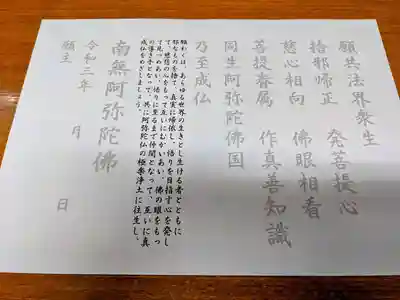 願共法界衆生
捨邪帰正　発菩提心
慈心相向　佛眼相看
菩提眷属　作真善知識
同生阿弥陀佛国
乃至成仏
願わくは、あらゆる世界の生きとし生ける者とともに
邪なものを捨て、真実に帰依し、悟りを目指す心を発し
て、慈悲の心をもって互いにむかいあい、佛の眼をもっ
て見つめあい、悟りに至るまで仲間となって、互いに真
の導き手となって、共に阿弥陀仏の極楽浄土に往生し、
成仏をめざしましょう。
南無阿弥陀佛
令和三年　月　日
願主